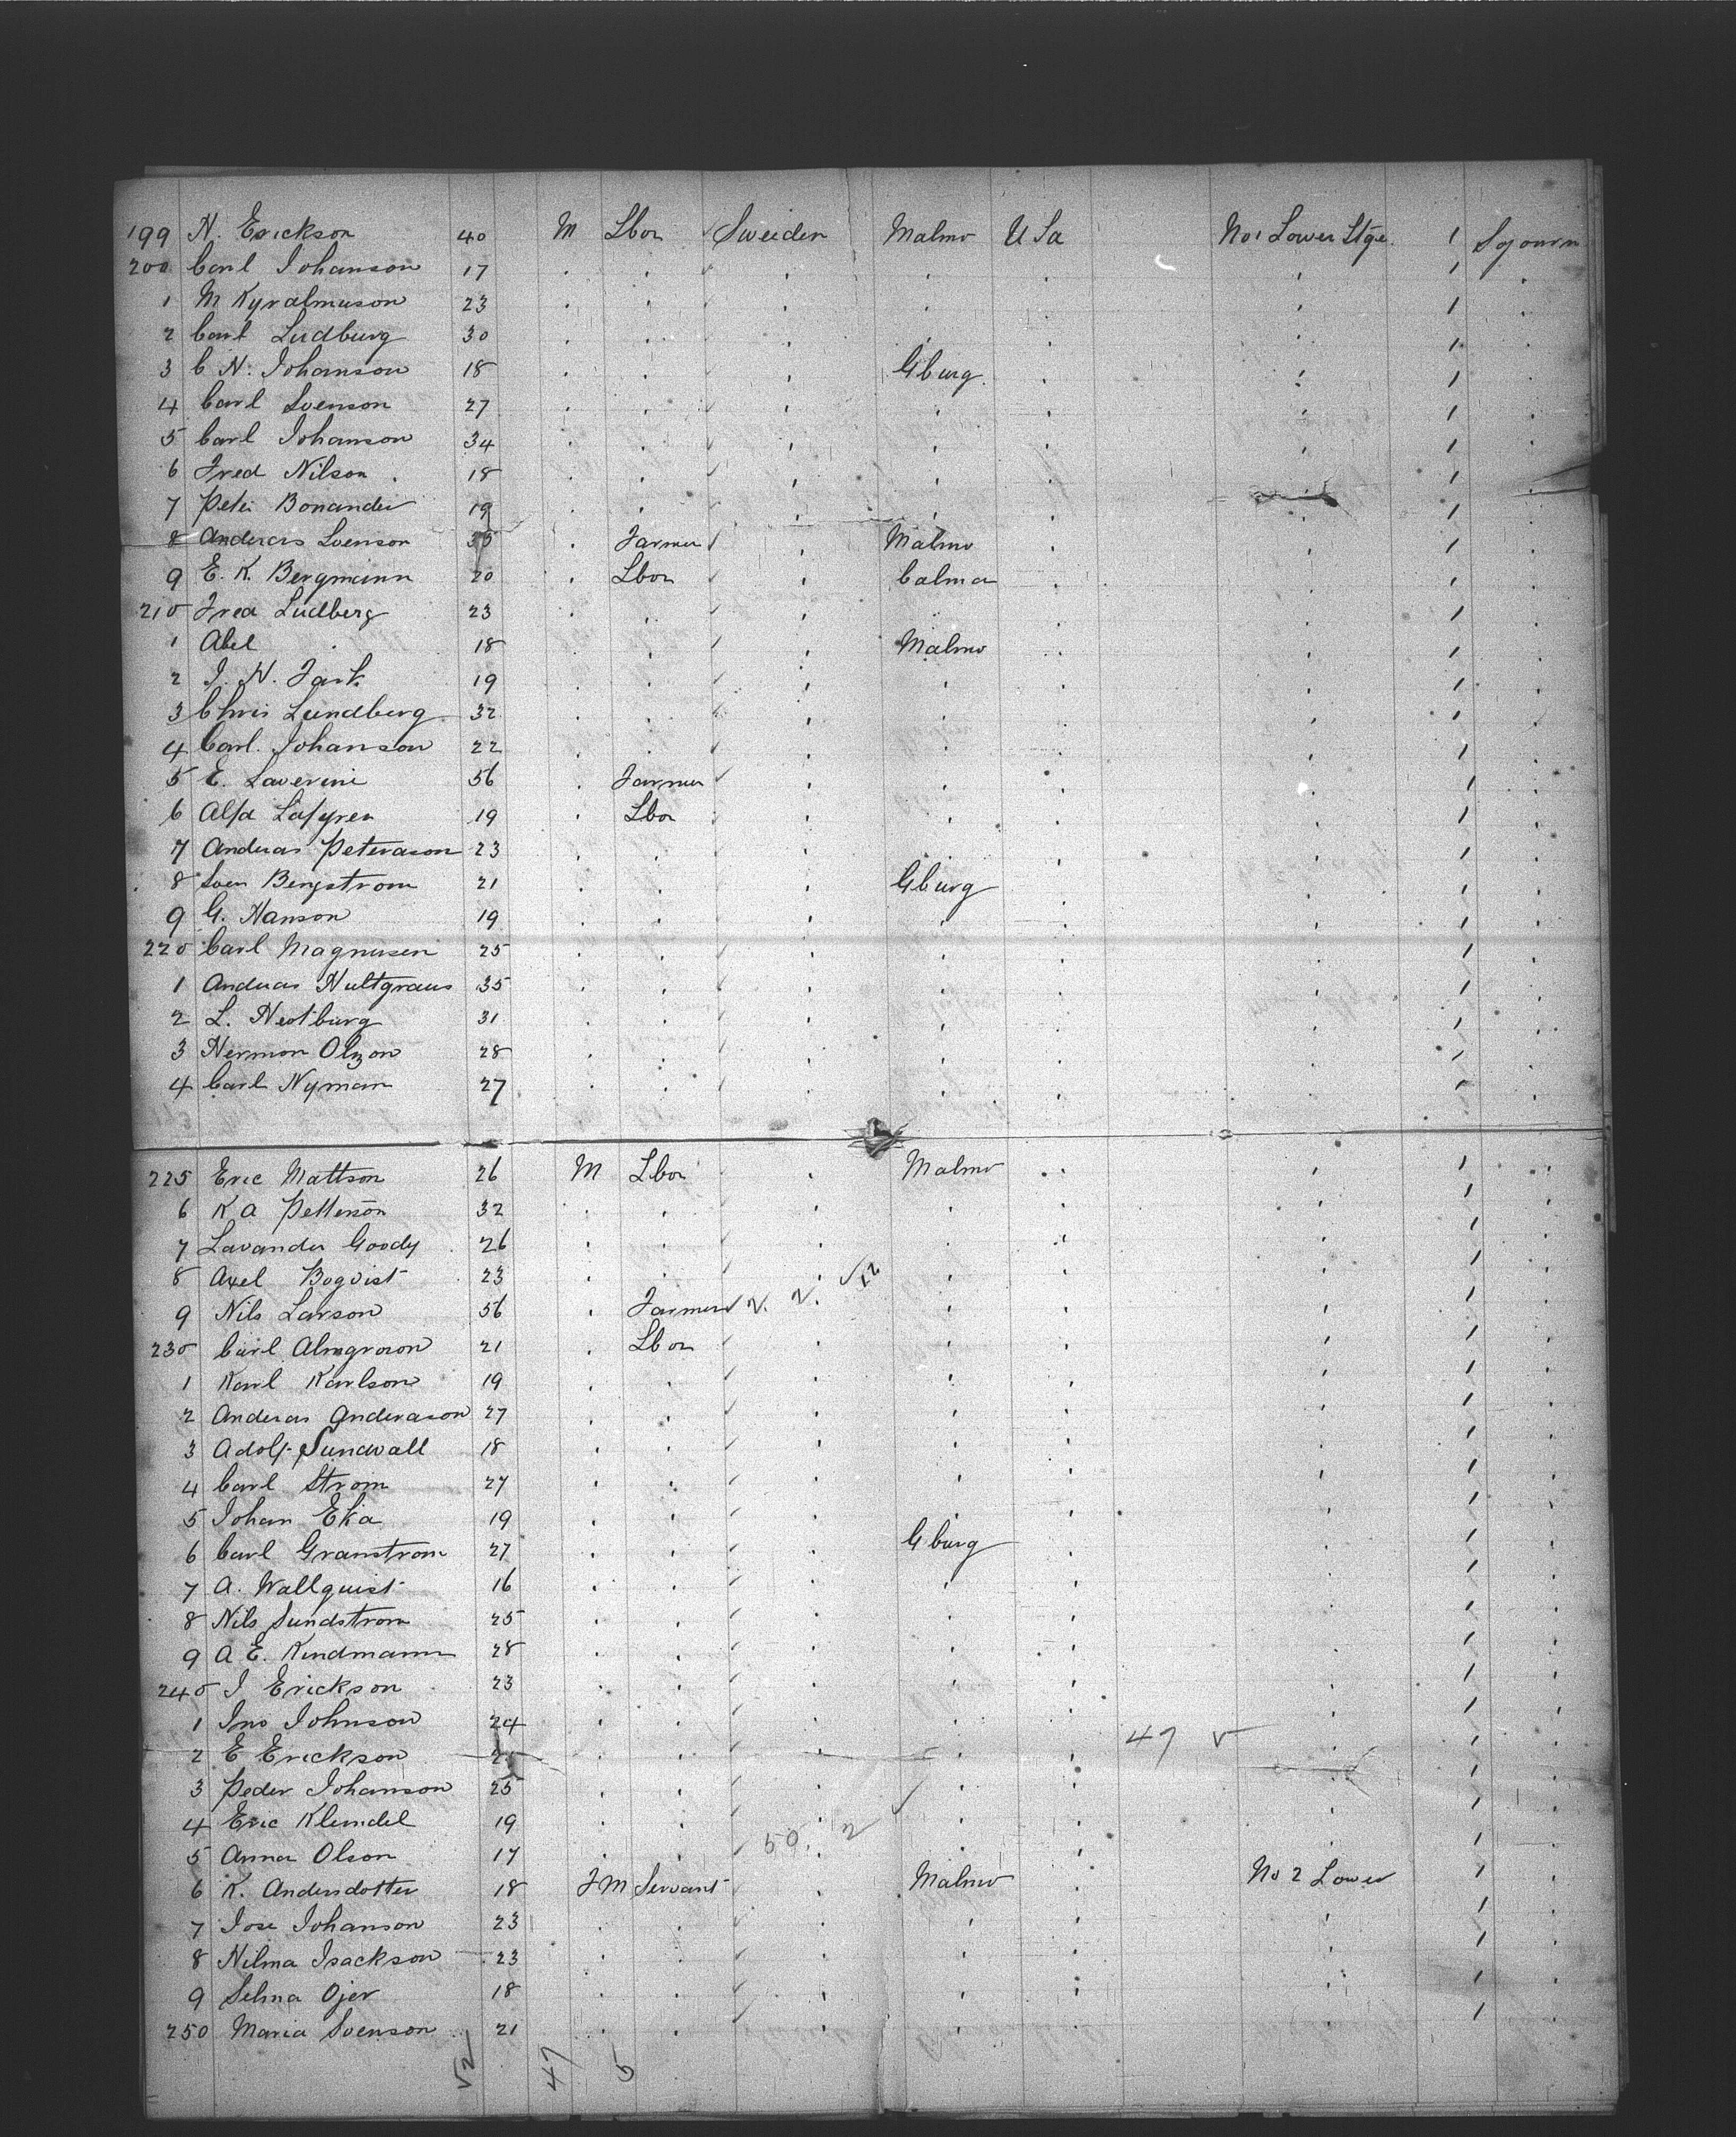 199 N. Erickson 40 M Lbor Sweiden Malmo U Sa No 1 Lower Stge. 1 Sojourn
200 Carl Johanson 17 1
1 M Kyralmuson 23 1
2 Carl Ludburg 30 1
3 C N. Johanson 18 Gburg 1
4 Carl Svenson 27 1
5 Carl Johanson 34 1
6 Fred Nilson 18 1
7 Peter Bonander 19 1
8 Anderas Svenson 35 Farmer Malmo 1
9 E. K. Bergmann 20 Lbor Calmar 1
210 Fred Ludberg 23 1
1 Abel 18 Malmo 1
2 J. N. Jark 19 1
3 Chris Lundberg 32 1
4 Carl. Johanson 22 1
5 E. Laverini 56 Farmer 1
6 Alfd Lofgren 19 Lbor 1
7 Anderas Peterason 23 1
8 Sven Bengstrom 21 Gburg 1
9 G. Hanson 19 1
220 Carl Magnusen 25 1
1 Anderas Hultgraus 35 1
2 L. Hestburg 31 1
3 Herman Olzon 28 1
4 Carl Nyman 27 1
225 Eric Mattson 26 M Lbor Malmo 1
6 K A Petterson 32 1
7 Lavander Goody 26 1
8 Axel Boqvist 23 1
9 Nils Larson 56 Farmer 1
230 Carl Almgroson 21 Lbor 1
1 Karl Karlson 19 1
2 Anderas Anderason 27 1
3 Adolf Sundvall 18 1
4 Carl Strom 27 1
5 Johan Eka 19 1
6 Carl Granstrom 27 Gburg 1
7 A. Wallquist 16 1
8 Nils Sundstrom 25 1
9 A E. Kindmann 28 1
240 J Erickson 23 1
1 Jno Johnson 24 1
2 E Erickson 47 1
3 Peder Johanson 25 1
4 Eric Klindel 19 1
5 Anna Olson 17 50 1
6 K. Andersdotter 18 F M Servant Malmo No 2 Lower 1
7 Jose Johanson 23 1
8 Hilma Isackson 23 1
9 Selma Ojer 18 1
250 Maria Svenson 21 1
47